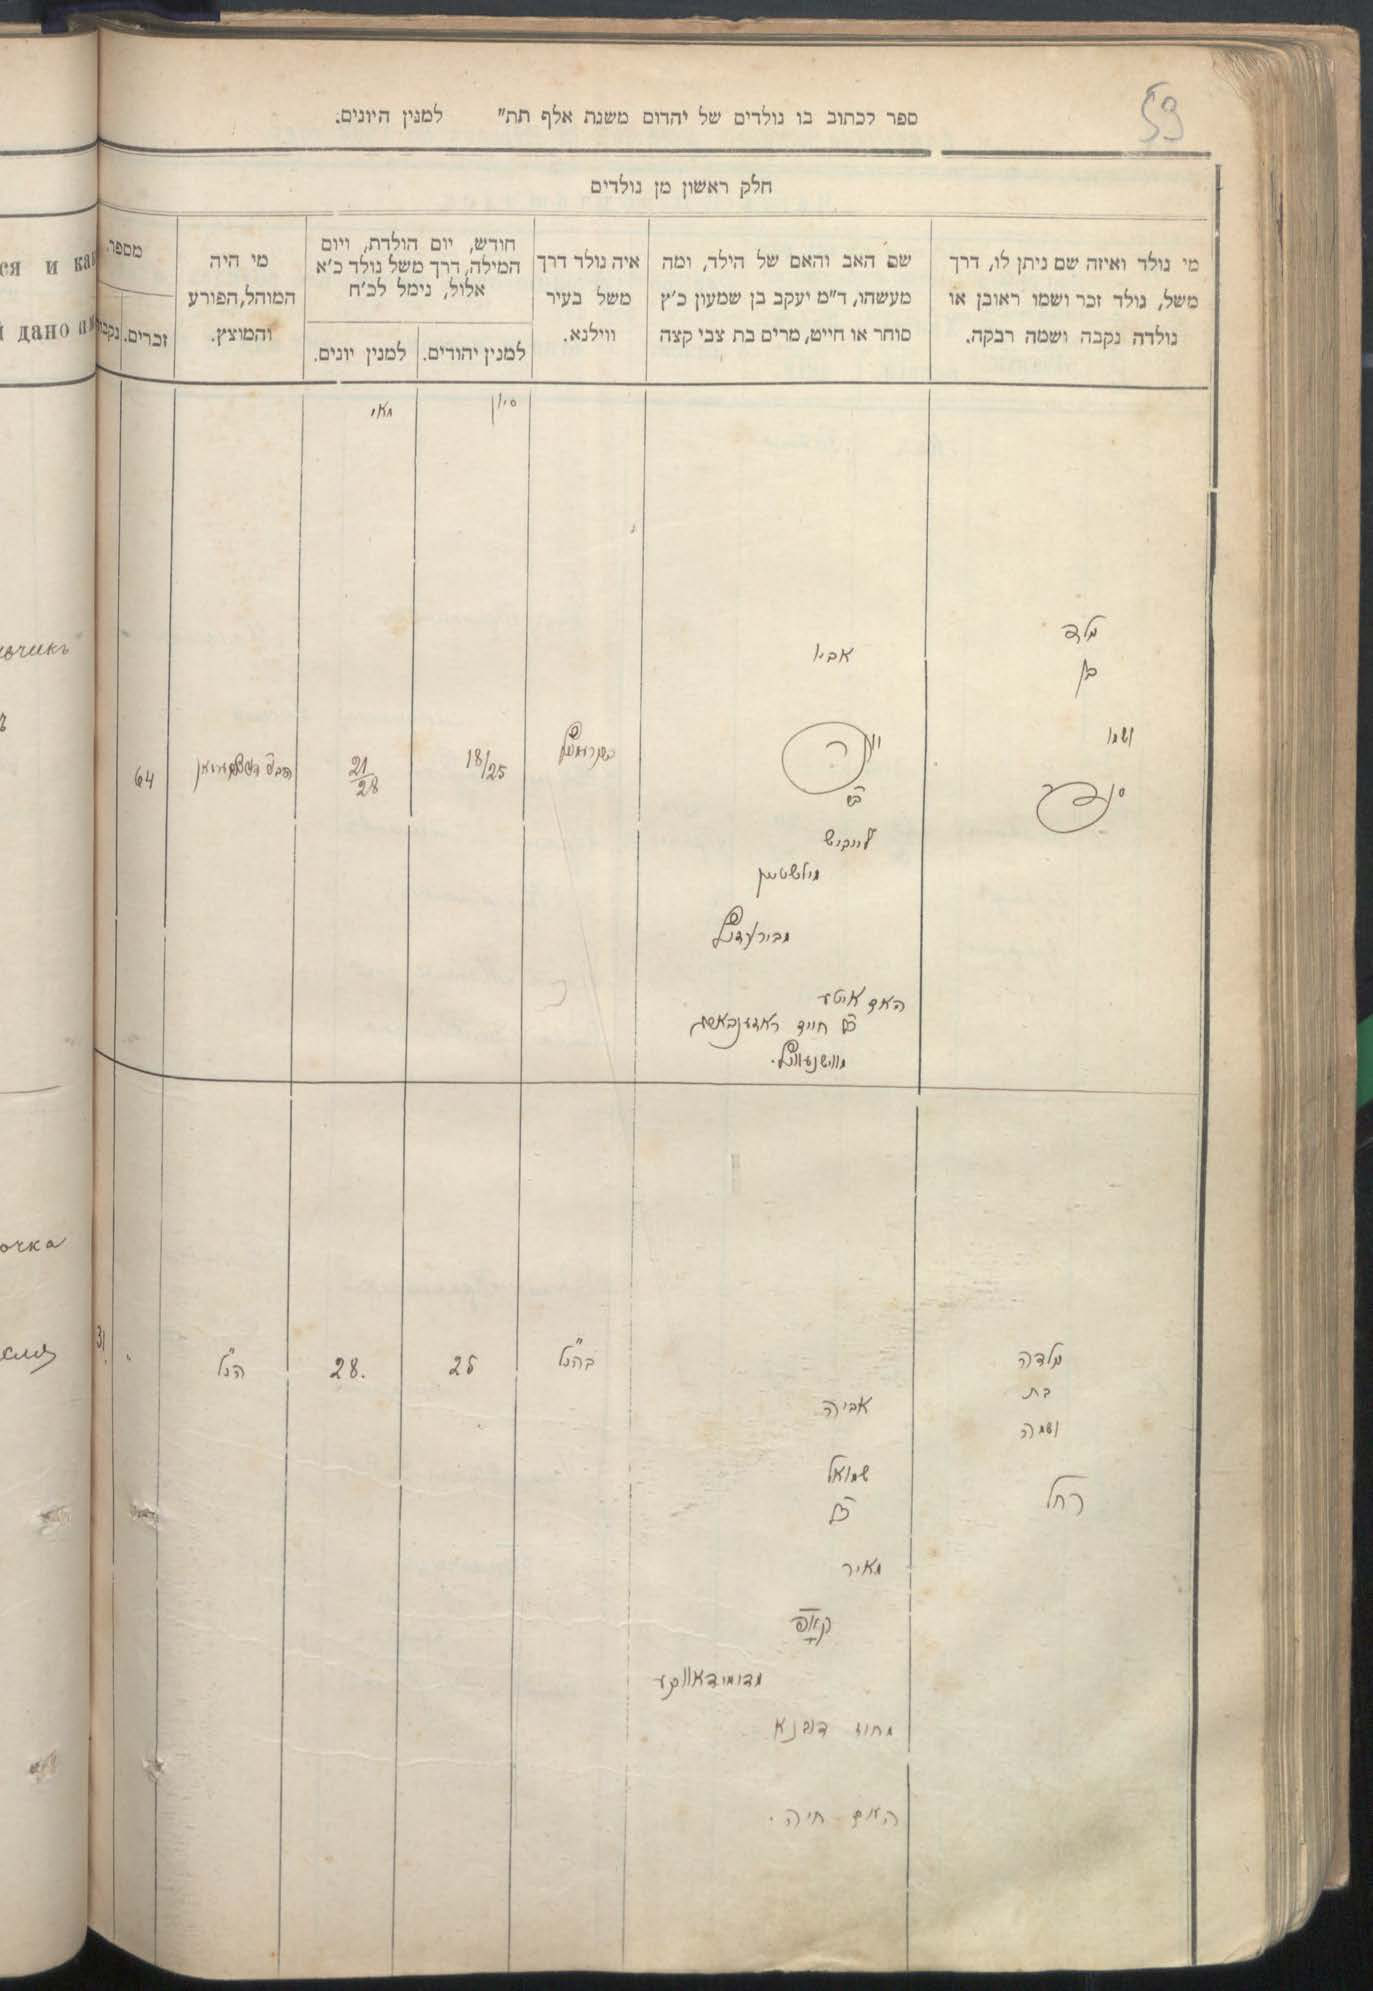 59
ספר לכתוב בו נולדים של יהדום משנת אלף תת״ למנין היונים.
חלק ראשון מן נולדים
מי נולד ואיזה שם ניתן לו, דרך
משל, נולד זכר ושמו ראובן או
נולדה נקבה ושמה רבקה.
שם האב והאם של הילד, ומה
מעשהו, ד״מ יעקב בן שמעון כ״ץ
סוחר או חייט, מרים בת צבי קצה
איה נולד דרך
משל בעיר
ווילנא.
חודש, יום הולדת, ויום
המילה, דרך משל נולד כ״א
אלול, נימל לכ״ח
למנין יהודים.
למנין יונים.
מי היה
המוהל, הפורע
והמוצץ.
מספר.
זכרים.
נקבות
ся и как
й дано им
סיון
מאי
ילד
בן
ושמו
אביו
יונה
לייביש
מילשטיין
האם איטע
בת חיים
18/25
21/28
64
вчикъ
очка
ילדה
בת
ושמה
רחל
אביה
שמואל
בן
מאיר
קאפ
מדומידאווקע
מחוז דובנא
האם חיה.
בהנ״ל
25
28.
הנ״ל
31.